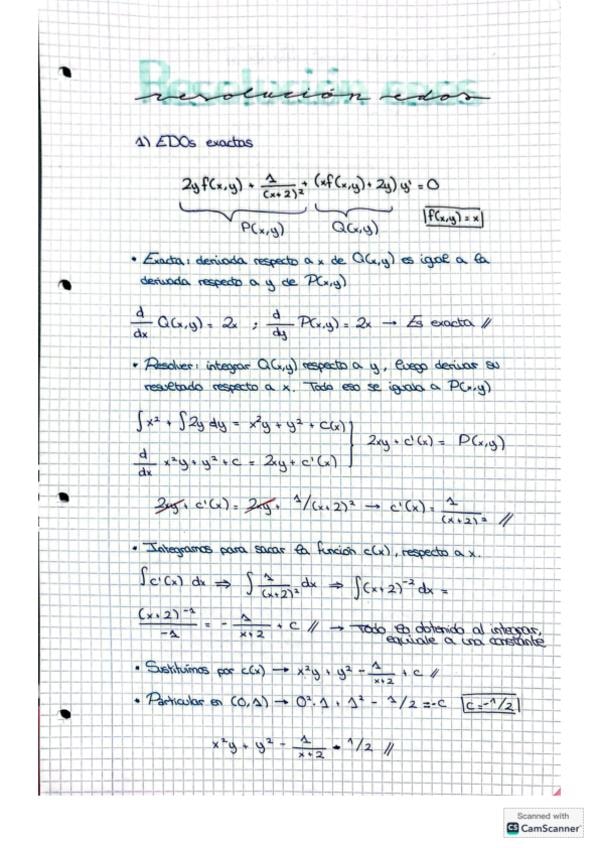 Resolución edos
resolución edos
1) EDOs exactas
2y f(x,y) + 1/(x+2)² + (x f(x,y) + 2y) y' = 0
P(x,y) Q(x,y) f(x,y) = x
• Exacta: derivada respecto a x de Q(x,y) es igual a la
derivada respecto a y de P(x,y)
d/dx Q(x,y) = 2x ; d/dy P(x,y) = 2x → Es exacta //
• Resolver: integrar Q(x,y) respecto a y, luego derivar su
resultado respecto a x. Todo eso se iguala a P(x,y)
∫x² + ∫2y dy = x²y + y² + c(x)
d/dx x²y + y² + c = 2xy + c'(x) } 2xy + c'(x) = P(x,y)
2xy + c'(x) = 2xy + 1/(x+2)² → c'(x) = 1/(x+2)² //
• Integramos para sacar la función c(x), respecto a x.
∫c'(x) dx ⇒ ∫ 1/(x+2)² dx ⇒ ∫(x+2)⁻² dx =
(x+2)⁻¹/-1 = - 1/x+2 + c // → Todo lo obtenido al integrar,
equivale a una constante
• Sustituimos por c(x) → x²y + y² - 1/x+2 + c //
• Particular en (0,1) → 0²·1 + 1² - 1/2 = -c c = -1/2
x²y + y² - 1/x+2 - 1/2 //
Scanned with
CS CamScanner